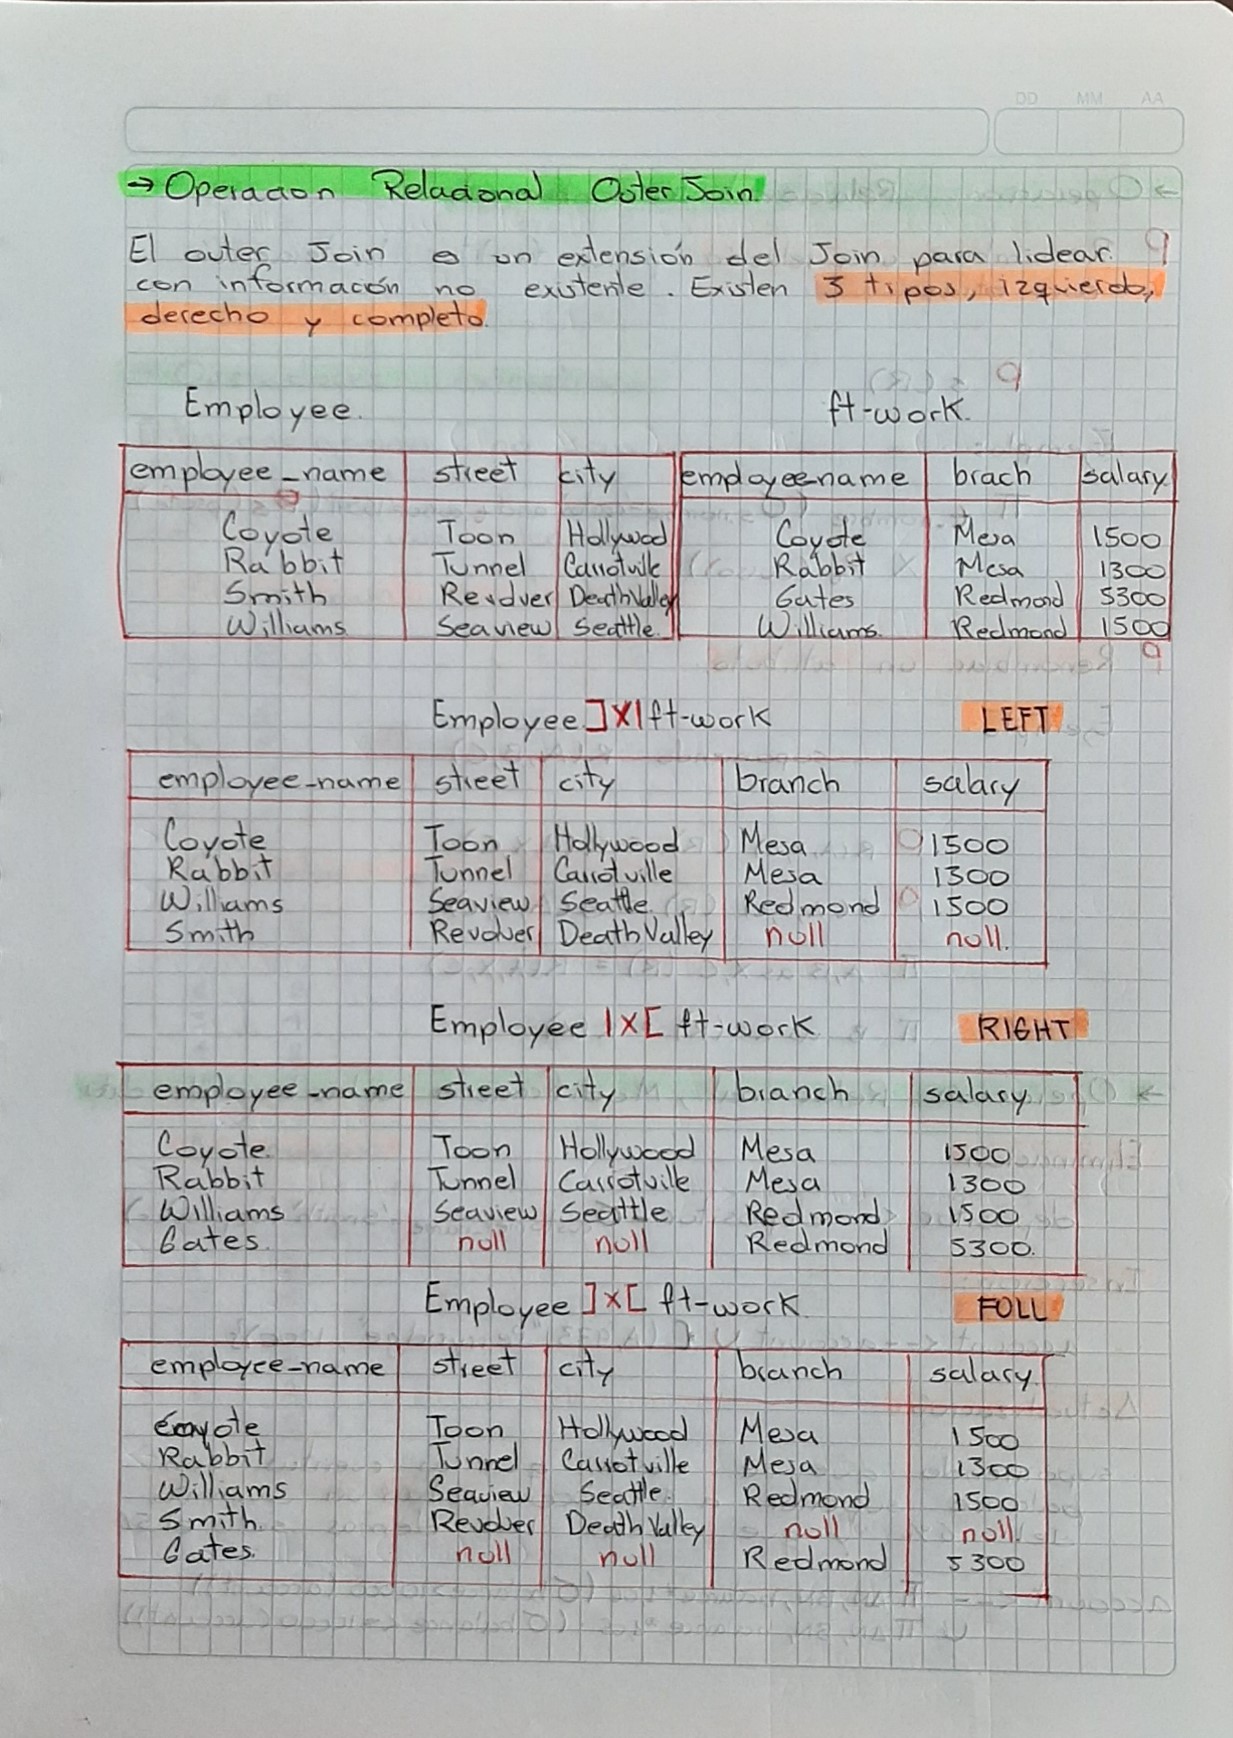 DD MM AA
→ Operacion Relacional Outer Join.
El outer Join es un extensión del Join para lidear
con información no existente. Existen 3 tipos, izquierdo,
derecho y completo.
Employee. ft-work.
employee_name street city employee-name brach salary
Coyote Toon Hollywood Coyote Mesa 1500
Rabbit Tunnel Carrotville Rabbit Mesa 1300
Smith Revolver Death Valley Gates Redmond 5300
Williams Seaview Seattle. Williams. Redmond 1500
Employee ]X| ft-work LEFT
employee-name street city branch salary
Coyote Toon Hollywood Mesa 1500
Rabbit Tunnel Carrotville Mesa 1300
Williams Seaview Seattle. Redmond 1500
Smith Revolver Death Valley null null.
Employee |X[ ft-work RIGHT
employee-name street city branch salary
Coyote. Toon Hollywood Mesa 1500
Rabbit Tunnel Carrotville Mesa 1300
Williams Seaview Seattle Redmond 1500
Gates. null null Redmond 5300.
Employee ]X[ ft-work FULL
employee-name street city branch salary.
Coyote Toon Hollywood Mesa 1500
Rabbit Tunnel Carrotville Mesa 1300
Williams Seaview Seattle. Redmond 1500
Smith. Revolver Death Valley null null.
Gates. null null Redmond 5300